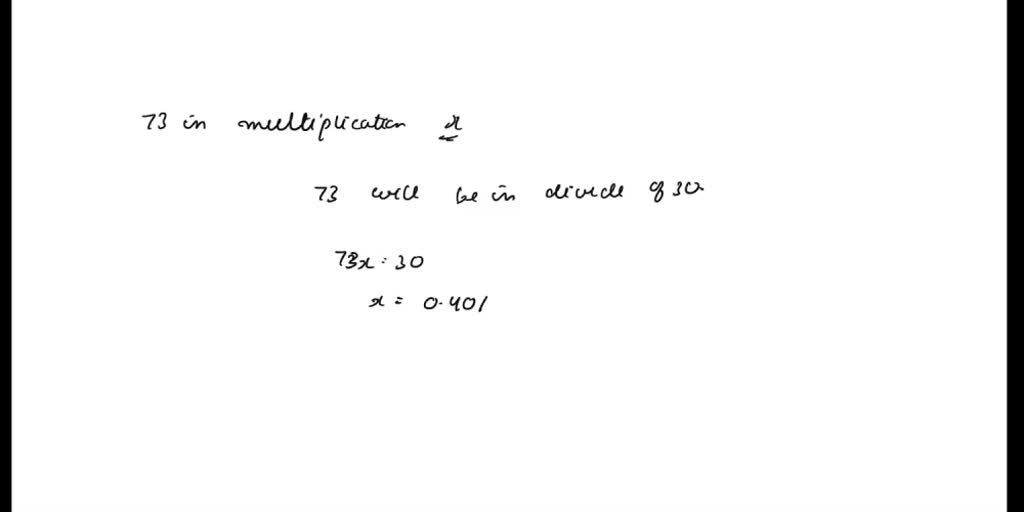 73 in multiplication x
73 will be in divide of 30
73x = 30
x = 0.401